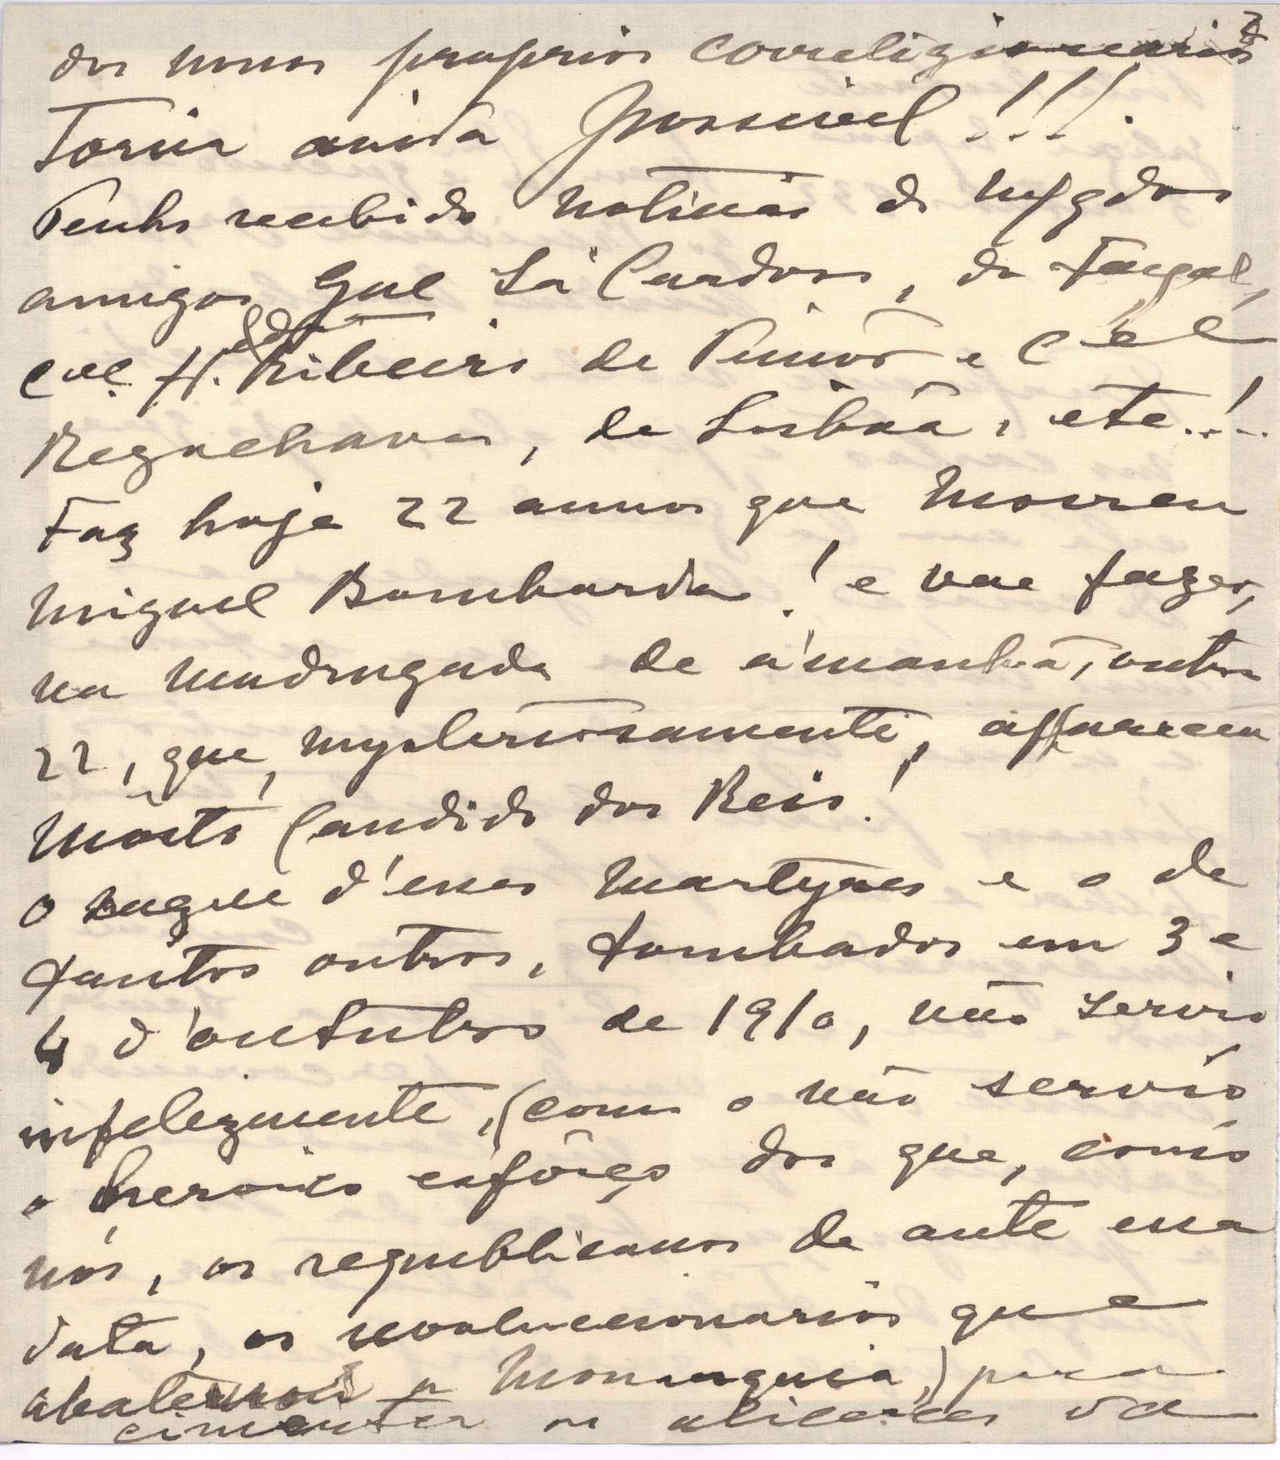 2
dos nossos proprios correligionarios
Toria ainda possivel!!!.
Tenho recebido noticias de mfg dos
amigos, Gal Sá Cardoso, do Fayal,
cel. H. Ribeiro de Pinho e Cel
Reguchavas, de Lisbôa, etc..!..
Faz hoje 22 annos que morreu
Miguel Bombarda! e vae fazer,
na madrugada de ámanhã, outros
22, que, mysteriosamente, appareceu
môrto Candido dos Reis!
O sangue d'esses martyres e o de
tantos outros, tombados em 3 e
4 d'outubro de 1910, não servio
infelizmente, (como o não servio
o heroico esfôrço dos que, como
nós, os republicanos de ante essa
data, os revolucionarios que
abatemos a Monarquia,) para
cimentar os alicerces da